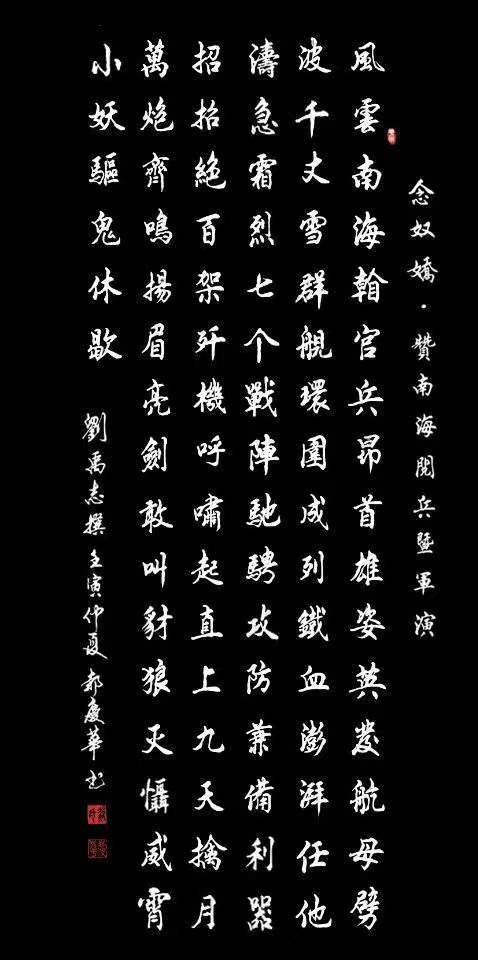 念奴嬌·贊南海閱兵暨軍演
風雲南海翰官兵昂首雄姿英發航母劈
波千丈雪群舰環圍成列鐵血澎湃任他
濤急霜烈七个戰陣馳騁攻防兼備利器
招招絕百架歼機呼嘯起直上九天擒月
萬炮齊鳴揚眉亮劍敢叫豺狼灭懾威霄
小妖驅鬼休歇
劉禹志撰壬寅仲夏郝慶華书